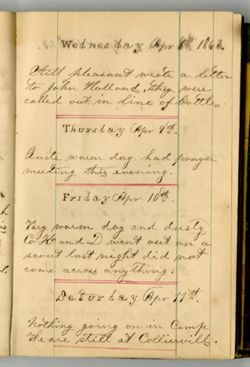 Wednesday Apr 8th 1863.
Still pleasant wrote a letter
to John Holland, they were
called out in line of battle.
Thursday Apr 9th.
Quite warm day. had prayer
meeting this evening.
Friday Apr 10th.
Very warm day and dusty
Co K and D went out on a
scout last night did not
come across anything.
Saturday Apr 11th.
Nothing going on in Camp
We are still at Collierville.